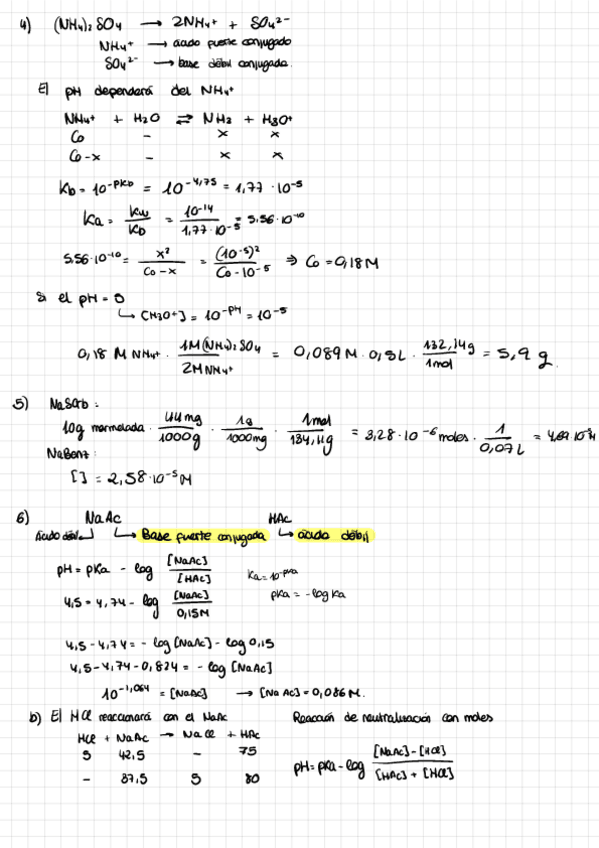 4) (NH4)2 SO4 → 2NH4+ + SO4 2-
NH4+ → ácido fuerte conjugado
SO4 2- → base débil conjugada.
El pH dependerá del NH4+
NH4+ + H2O ⇄ NH3 + H3O+
Co - x x
Co-x - x x
Kb = 10^-pKb = 10^-4,75 = 1,77 · 10^-5
Ka = Kw/Kb = 10^-14/1,77·10^-5 = 5,56·10^-10
5,56·10^-10 = x²/Co-x = (10^-5)²/Co-10^-5 ⇒ Co = 0,18M
Si el pH = 5
↳ [H3O+] = 10^-pH = 10^-5
0,18 M NH4+ · 1M(NH4)2SO4/2M NH4+ = 0,089M · 0,5L · 132,14g/1mol = 5,9 g.
5) NaSorb :
10g mermelada · 44mg/1000g · 1g/1000mg · 1mol/134,11g = 3,28·10^-6 moles · 1/0,07L = 4,69·10^-5M
NaBenz :
[ ] = 2,58·10^-5 M
6) NaAc HAc
Ácido débil ↲ ↳ Base fuerte conjugada ↳ ácido débil
pH = pKa - log [NaAc]/[HAc] Ka = 10^-pKa
4,5 = 4,74 - log [NaAc]/0,15M pKa = -log Ka
4,5 - 4,74 = - log [NaAc] - log 0,15
4,5 - 4,74 - 0,824 = - log [NaAc]
10^-1,064 = [NaAc] → [NaAc] = 0,086M.
b) El HCl reaccionará con el NaAc Reacción de neutralización con moles
HCl + NaAc → NaCl + HAc
5 42,5 - 75
- 37,5 5 80
pH = pKa - log [NaAc] - [HCl]/[HAc] + [HCl]